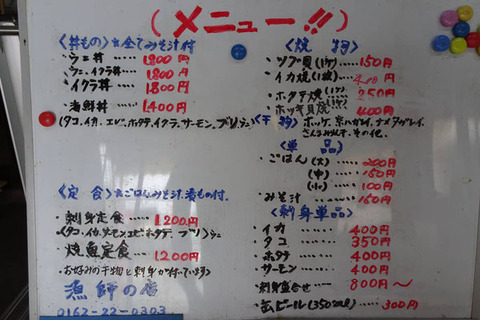 (メニュー!!)
〈丼もの〉全てみそ汁付
・ウニ丼 ・・・・・
・ウニ、イクラ丼
・イクラ丼 ・・・・ 1800円
・海鮮丼 ・・・・・ 1400円
(タコ、イカ、エビ、ホタテ、イクラ、サーモン、ブリ、
〈定食〉ごはん、みそ汁、
・刺身定食 ・・・・・ 1200円
(タコ、イカ、サーモン、エビ、ホタテ、ブリ)
・焼魚定食 ・・・・ 1200円
(お好みの干物と刺身が付いています)
漁師の店
0162-22-0303
〈焼物〉
・ツブ貝(1ケ) ・・・・ 150円
・イカ焼(1枚) ・・・・ 円
・ホタテ焼(1ケ) ・・・・ 250円
・ホッキ貝焼(1ケ) ・・・・ 400円
〈干物〉ホッケ、宗八ガレイ、
さんまみりん干、その他、
〈単品〉
・ごはん(大) ・・・・ 200円
(中) ・・・・ 150円
(小) ・・・・ 100円
・みそ汁 ・・・・・ 150円
〈刺身単品〉
・イカ ・・・・・ 400円
・タコ ・・・・・ 350円
・ホタテ ・・・・・ 400円
・サーモン ・・・・ 400円
・刺身盛合せ ・・・・ 800円〜
・缶ビール(350ml) ・・・・ 300円